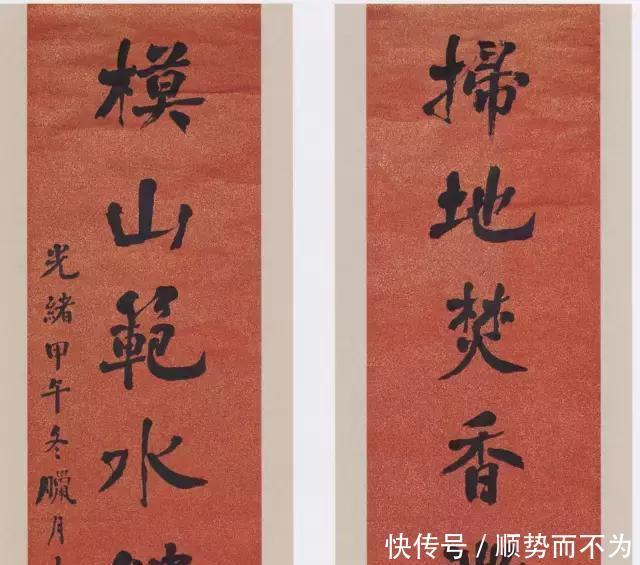 掃地焚香
模山範水
光緒甲午冬臘月
快传号/顺势而不为